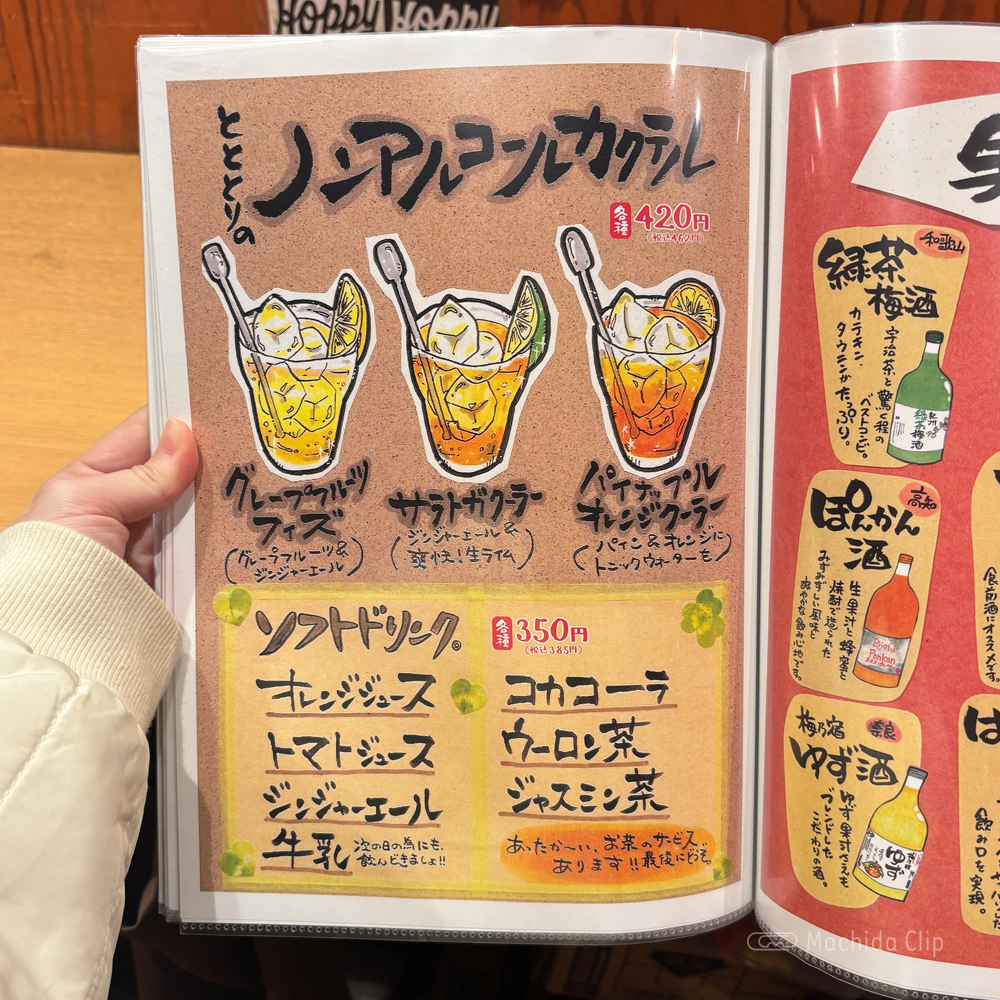 Hoppy Hoppy
とととりの
ノンアルコールカクテル
各種 420円
(税込462円)
グレープフルーツ
フィズ
(グレープフルーツ&
ジンジャーエール)
サラトガクーラー
(ジンジャーエール&
爽快!生ライム)
パイナップル
オレンジクーラー
(パイン&オレンジに
トニックウォーターを)
ソフトドリンク。
各種 350円
(税込385円)
オレンジジュース
トマトジュース
ジンジャーエール
牛乳
次の日の為にも、
飲んどきましょ!!
コカコーラ
ウーロン茶
ジャスミン茶
あったか〜い、お茶のサービス
あります!!最後にどうぞ。
和歌山
緑茶
梅酒
宇治茶と驚く程の
ベストコンビ。
カテキン、
タウニンがたっぷり。
緑茶梅酒
高知
ぽんかん
酒
生果汁と蜂蜜と
焼酎で造られた
みずみずしい風味と
爽やかな飲み心地です。
Ponkan
食前酒にオススメです。
梅乃宿
奈良
ゆず酒
ゆず果汁べえも
ブレンドした
こだわりの酒。
ゆず
は
飲み口を実現。
Machida Clip